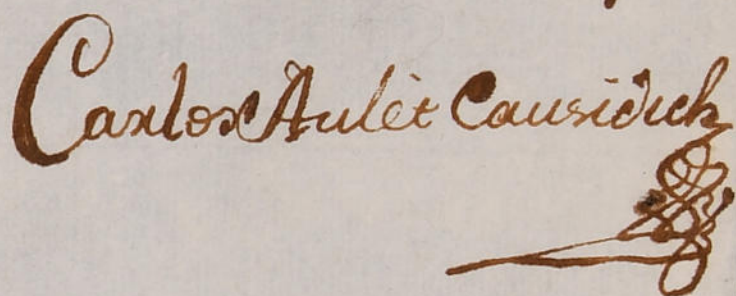 Carlos Aulèt Causidich